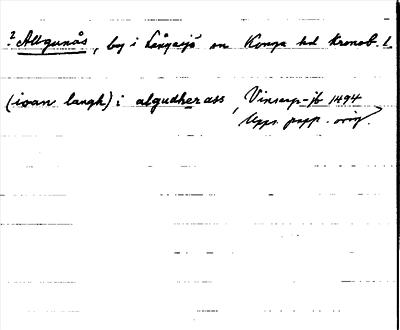 ? Allgunås, by i Långasjö sn Konga hd Kronob. l.
(ioan langh) i algudher ass, Vinsarp-jb 1494
Upps. papp. orig.